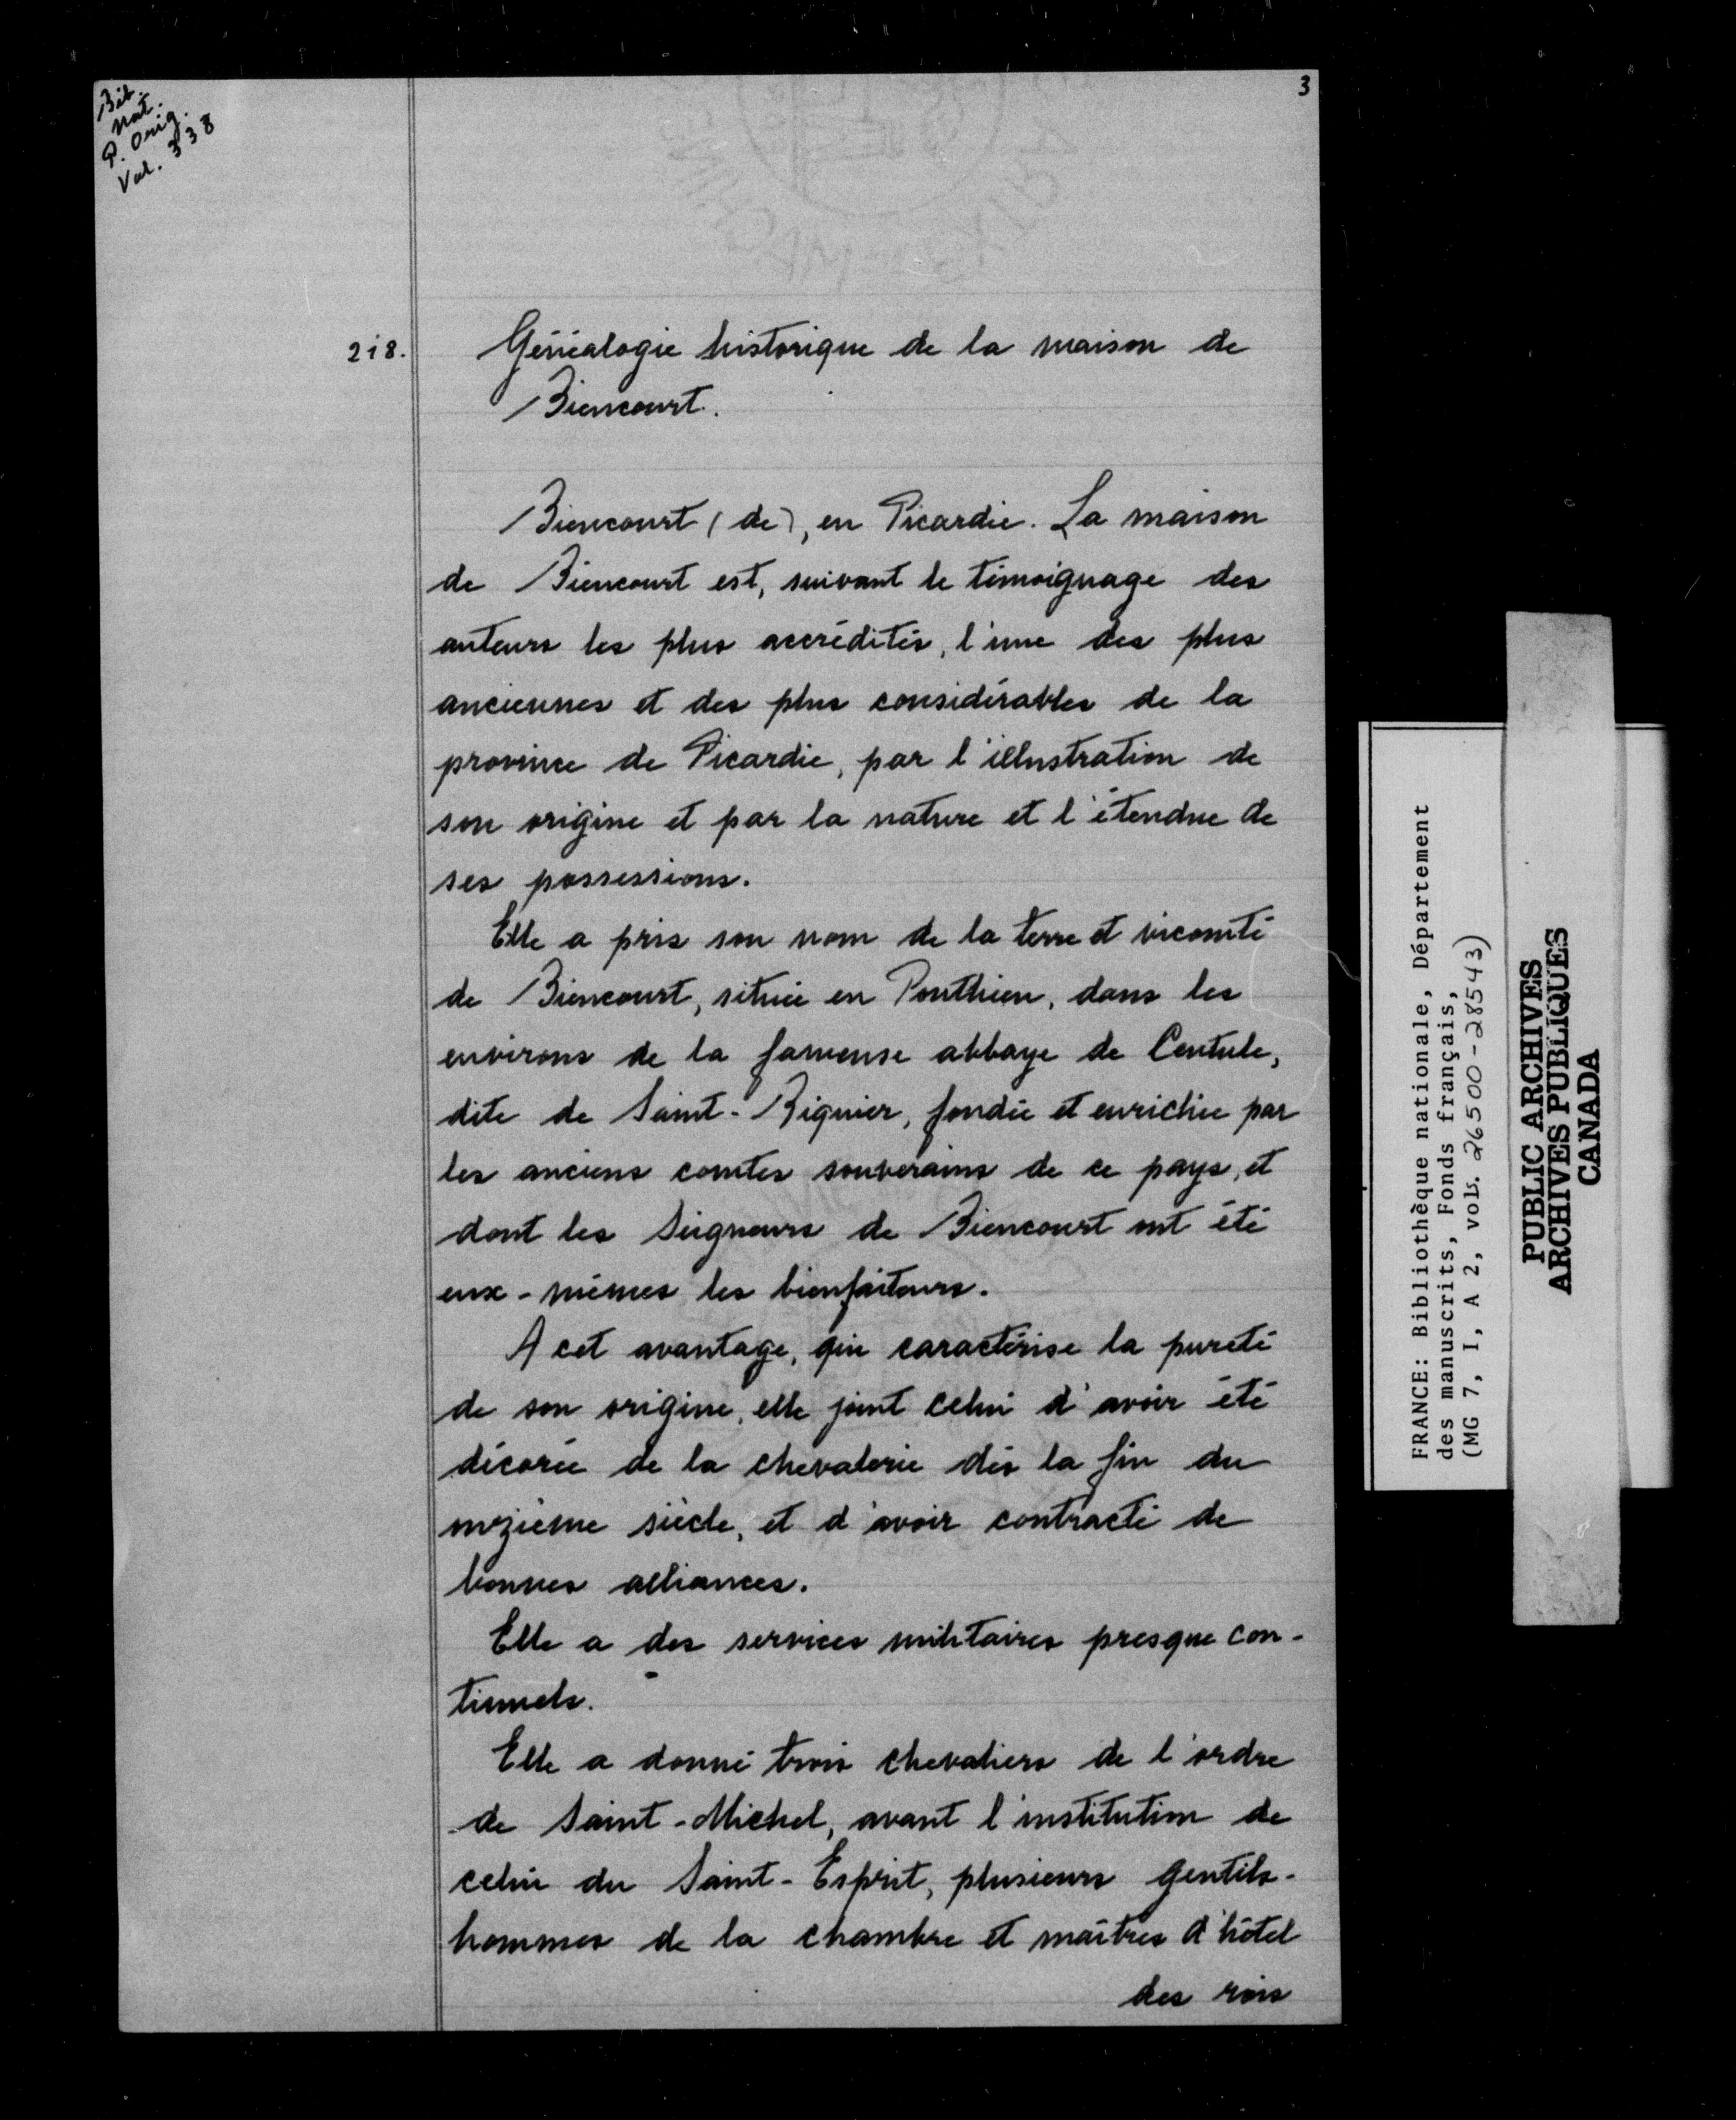 Bib.
Nat.
P. Orig.
Vol. 338
3
218.
Généalogie historique de la maison de
Biencourt.
Biencourt (de), en Picardie. La maison
de Biencourt est, suivant le témoignage des
auteurs les plus accrédités, l'une des plus
anciennes et des plus considérables de la
province de Picardie, par l'illustration de
son origine et par la nature et l'étendue de
ses possessions.
Elle a pris son nom de la terre et vicomté
de Biencourt, située en Ponthieu, dans les
environs de la fameuse abbaye de Centule,
dite de Saint-Riquier, fondée et enrichie par
les anciens comtes souverains de ce pays, et
dont les Seigneurs de Biencourt ont été
eux-mêmes les bienfaiteurs.
A cet avantage, qui caractérise la pureté
de son origine, elle joint celui d'avoir été
décorée de la chevalerie dès la fin du
onzième siècle, et d'avoir contracté de
bonnes alliances.
Elle a des services militaires presque con-
tinuels.
Elle a donné trois chevaliers de l'ordre
de Saint-Michel, avant l'institution de
celui du Saint-Esprit, plusieurs gentils-
hommes de la chambre et maîtres d'hôtel
des rois
FRANCE: Bibliothèque nationale, Département
des manuscrits, Fonds français,
(MG 7, I, A 2, vols. 26500-28543)
PUBLIC ARCHIVES
ARCHIVES PUBLIQUES
CANADA